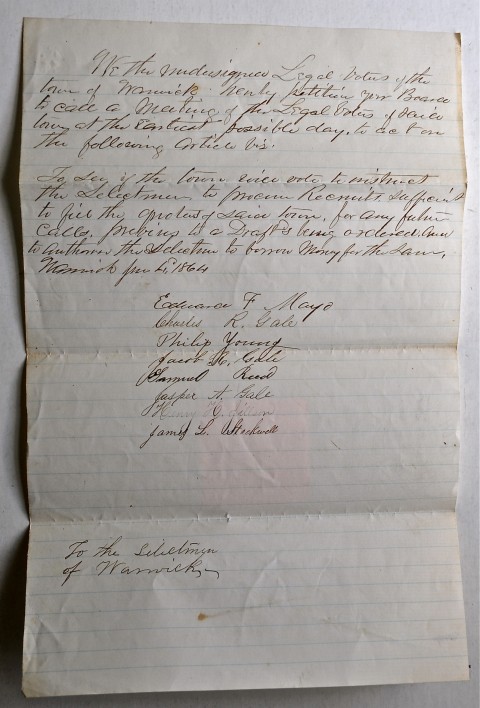 We the undersigned Legal Voters of the
town of Warwick hereby petition your Board
to call a Meeting of the Legal Voters of said
town at the Earliest possible day, to act on
the following Article viz.
To See if the town will vote to instruct
the Selectmen to procure Recruits sufficient
to fill the quotas of said town, for any future
Calls, previous to a Draft being ordered. And
to authorize the Selectmen to borrow Money for the Same,
Warwick June 4, 1864
Edward F Mayo
Charles R. Gale
Philip Young
Jacob H. Gale
Samuel Reed
Jasper A. Gale
Henry H.
James L. Stockwell
To the Selectmen
of Warwick